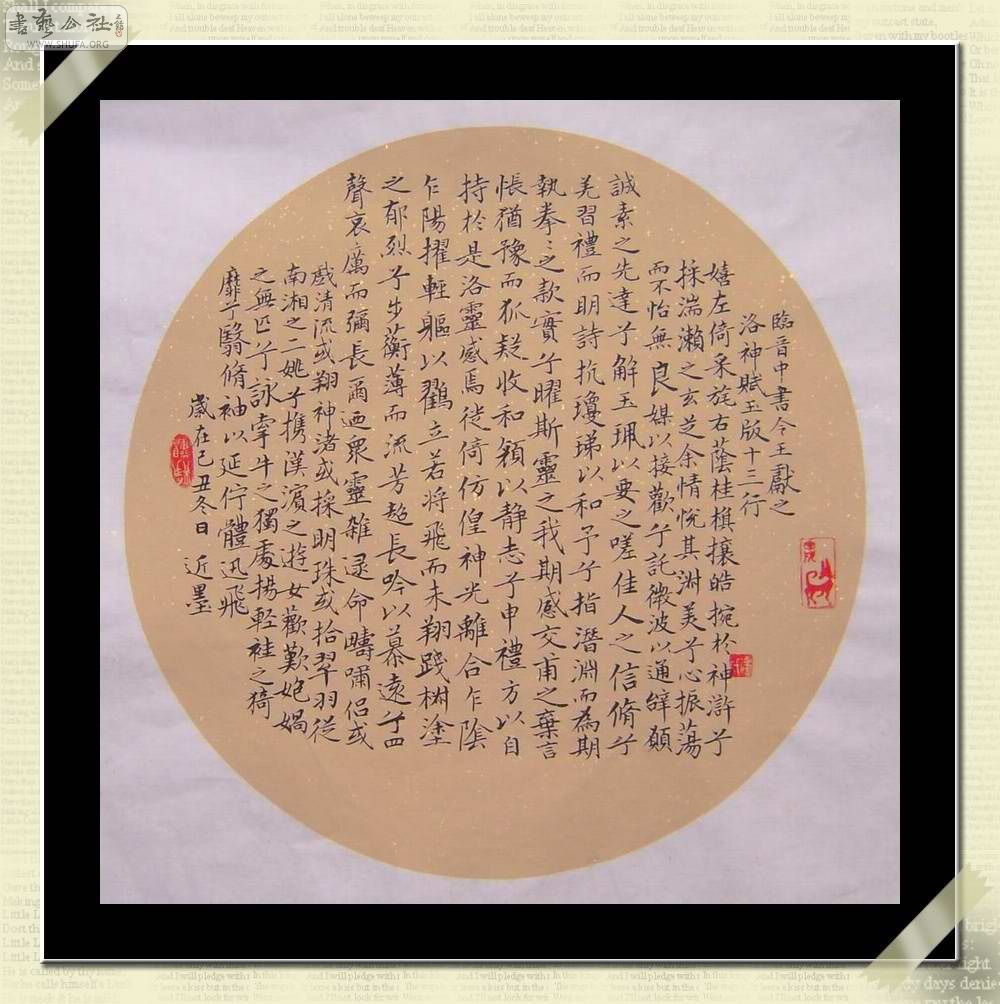 書藝公社
WWW.SHUFA.ORG
臨晉中書令王獻之
洛神賦玉版十三行
嬉左倚采旄右蔭桂旗攘皓捥於神滸兮
採湍瀨之玄芝余情悅其淋美兮心振蕩
而不怡無良媒以接歡兮託微波以通辭願
誠素之先達兮解玉珮以要之嗟佳人之信脩兮
羌習禮而明詩抗瓊珶以和予兮指潛淵而為期
執拳〻之款實兮曜斯靈之我期感交甫之棄言
悵猶豫而狐疑收和顏以静志兮申禮方以自
持於是洛靈感焉徙倚仿偟神光離合乍陰
乍陽擢輕軀以鶴立若將飛而未翔踐椒塗
之郁烈兮步蘅薄而流芳超長吟以慕遠兮
聲哀厲而彌長爾迺衆靈雜遝命疇嘯侶或
戲清流或翔神渚或採明珠或拾翠羽從
南湘之二姚兮攜漢濱之遊女歡歎匏媧
之無匹兮詠牽牛之獨處揚輕袿之猗
靡兮翳脩袖以延佇體迅飛
歲在己丑冬日 近墨